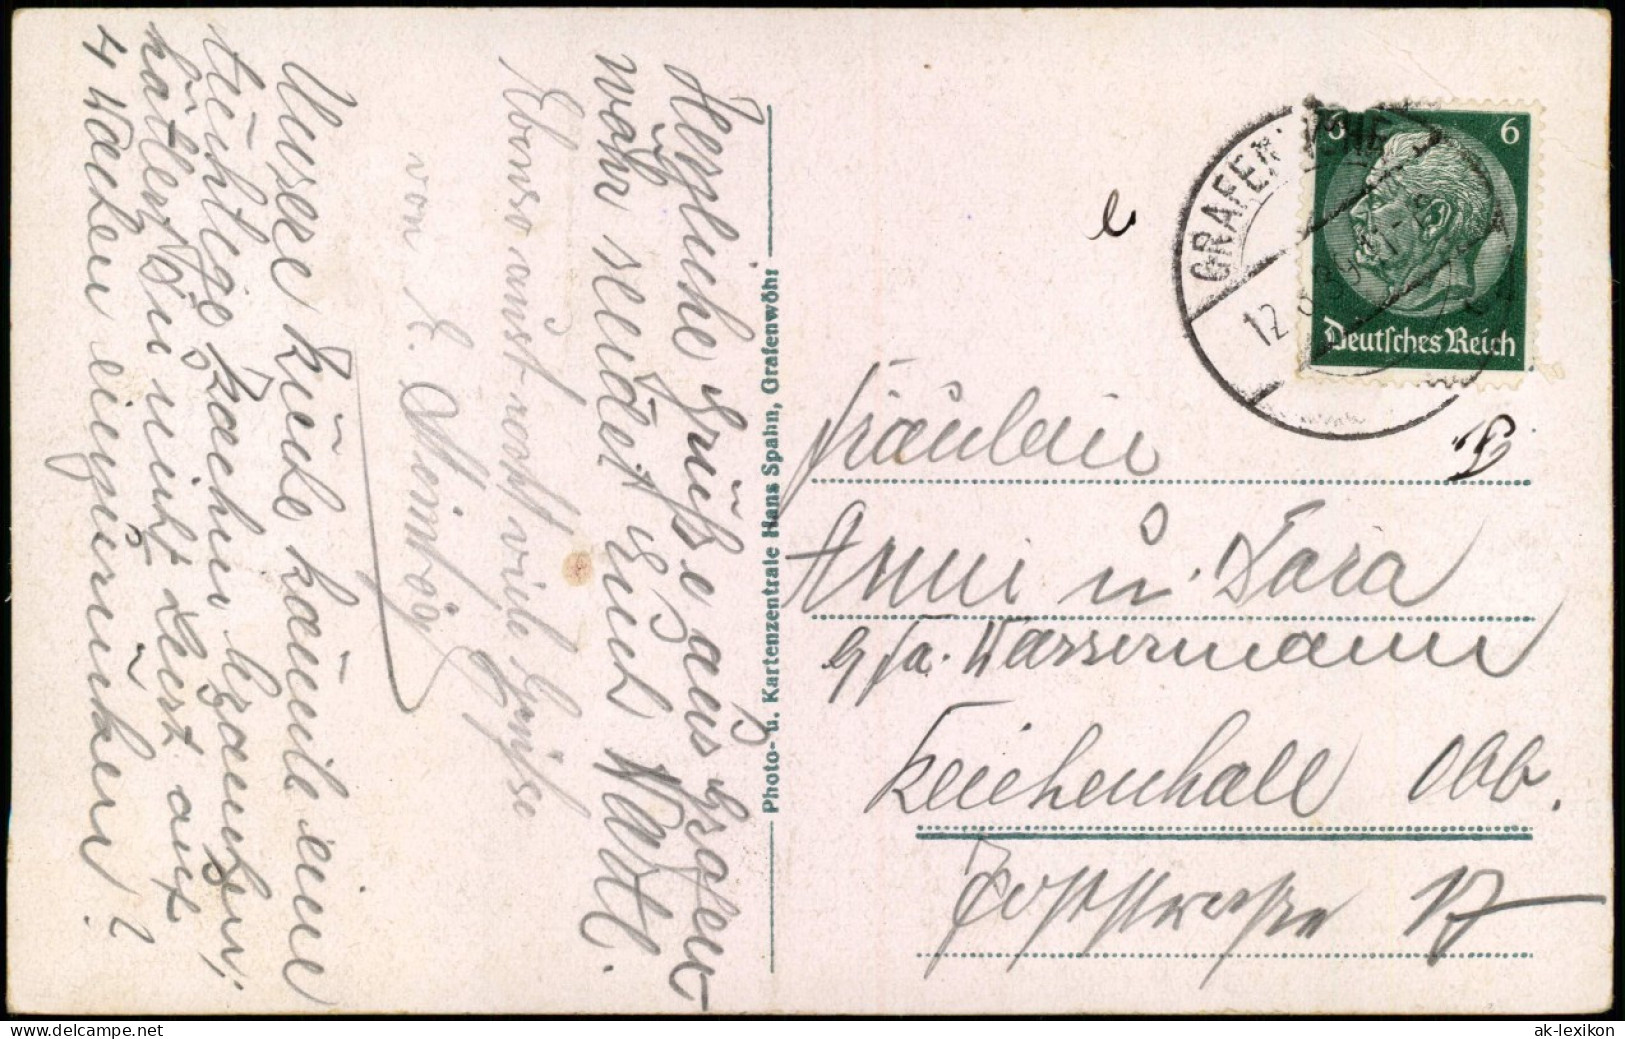 Herzliche Grüße aus Grafen
wöhr sendet Euch Wastl.
Ebenso aüst noch viele Grüsse
von
Unsere Küche könnte eine
tüchtige Köchin brauchen,
hätten Sie nicht Lust auf
4 Wochen einzurücken?
Photo- u. Kartenzentrale Hans Spahn, Grafenwöhr
GRAFENWÖHR
12
6 6
Deutsches Reich
Fräulein
Anni u. Dora
Fa. Wassermann
Reichenhall Obb.
Poststrasse 17
hip-postcard.com